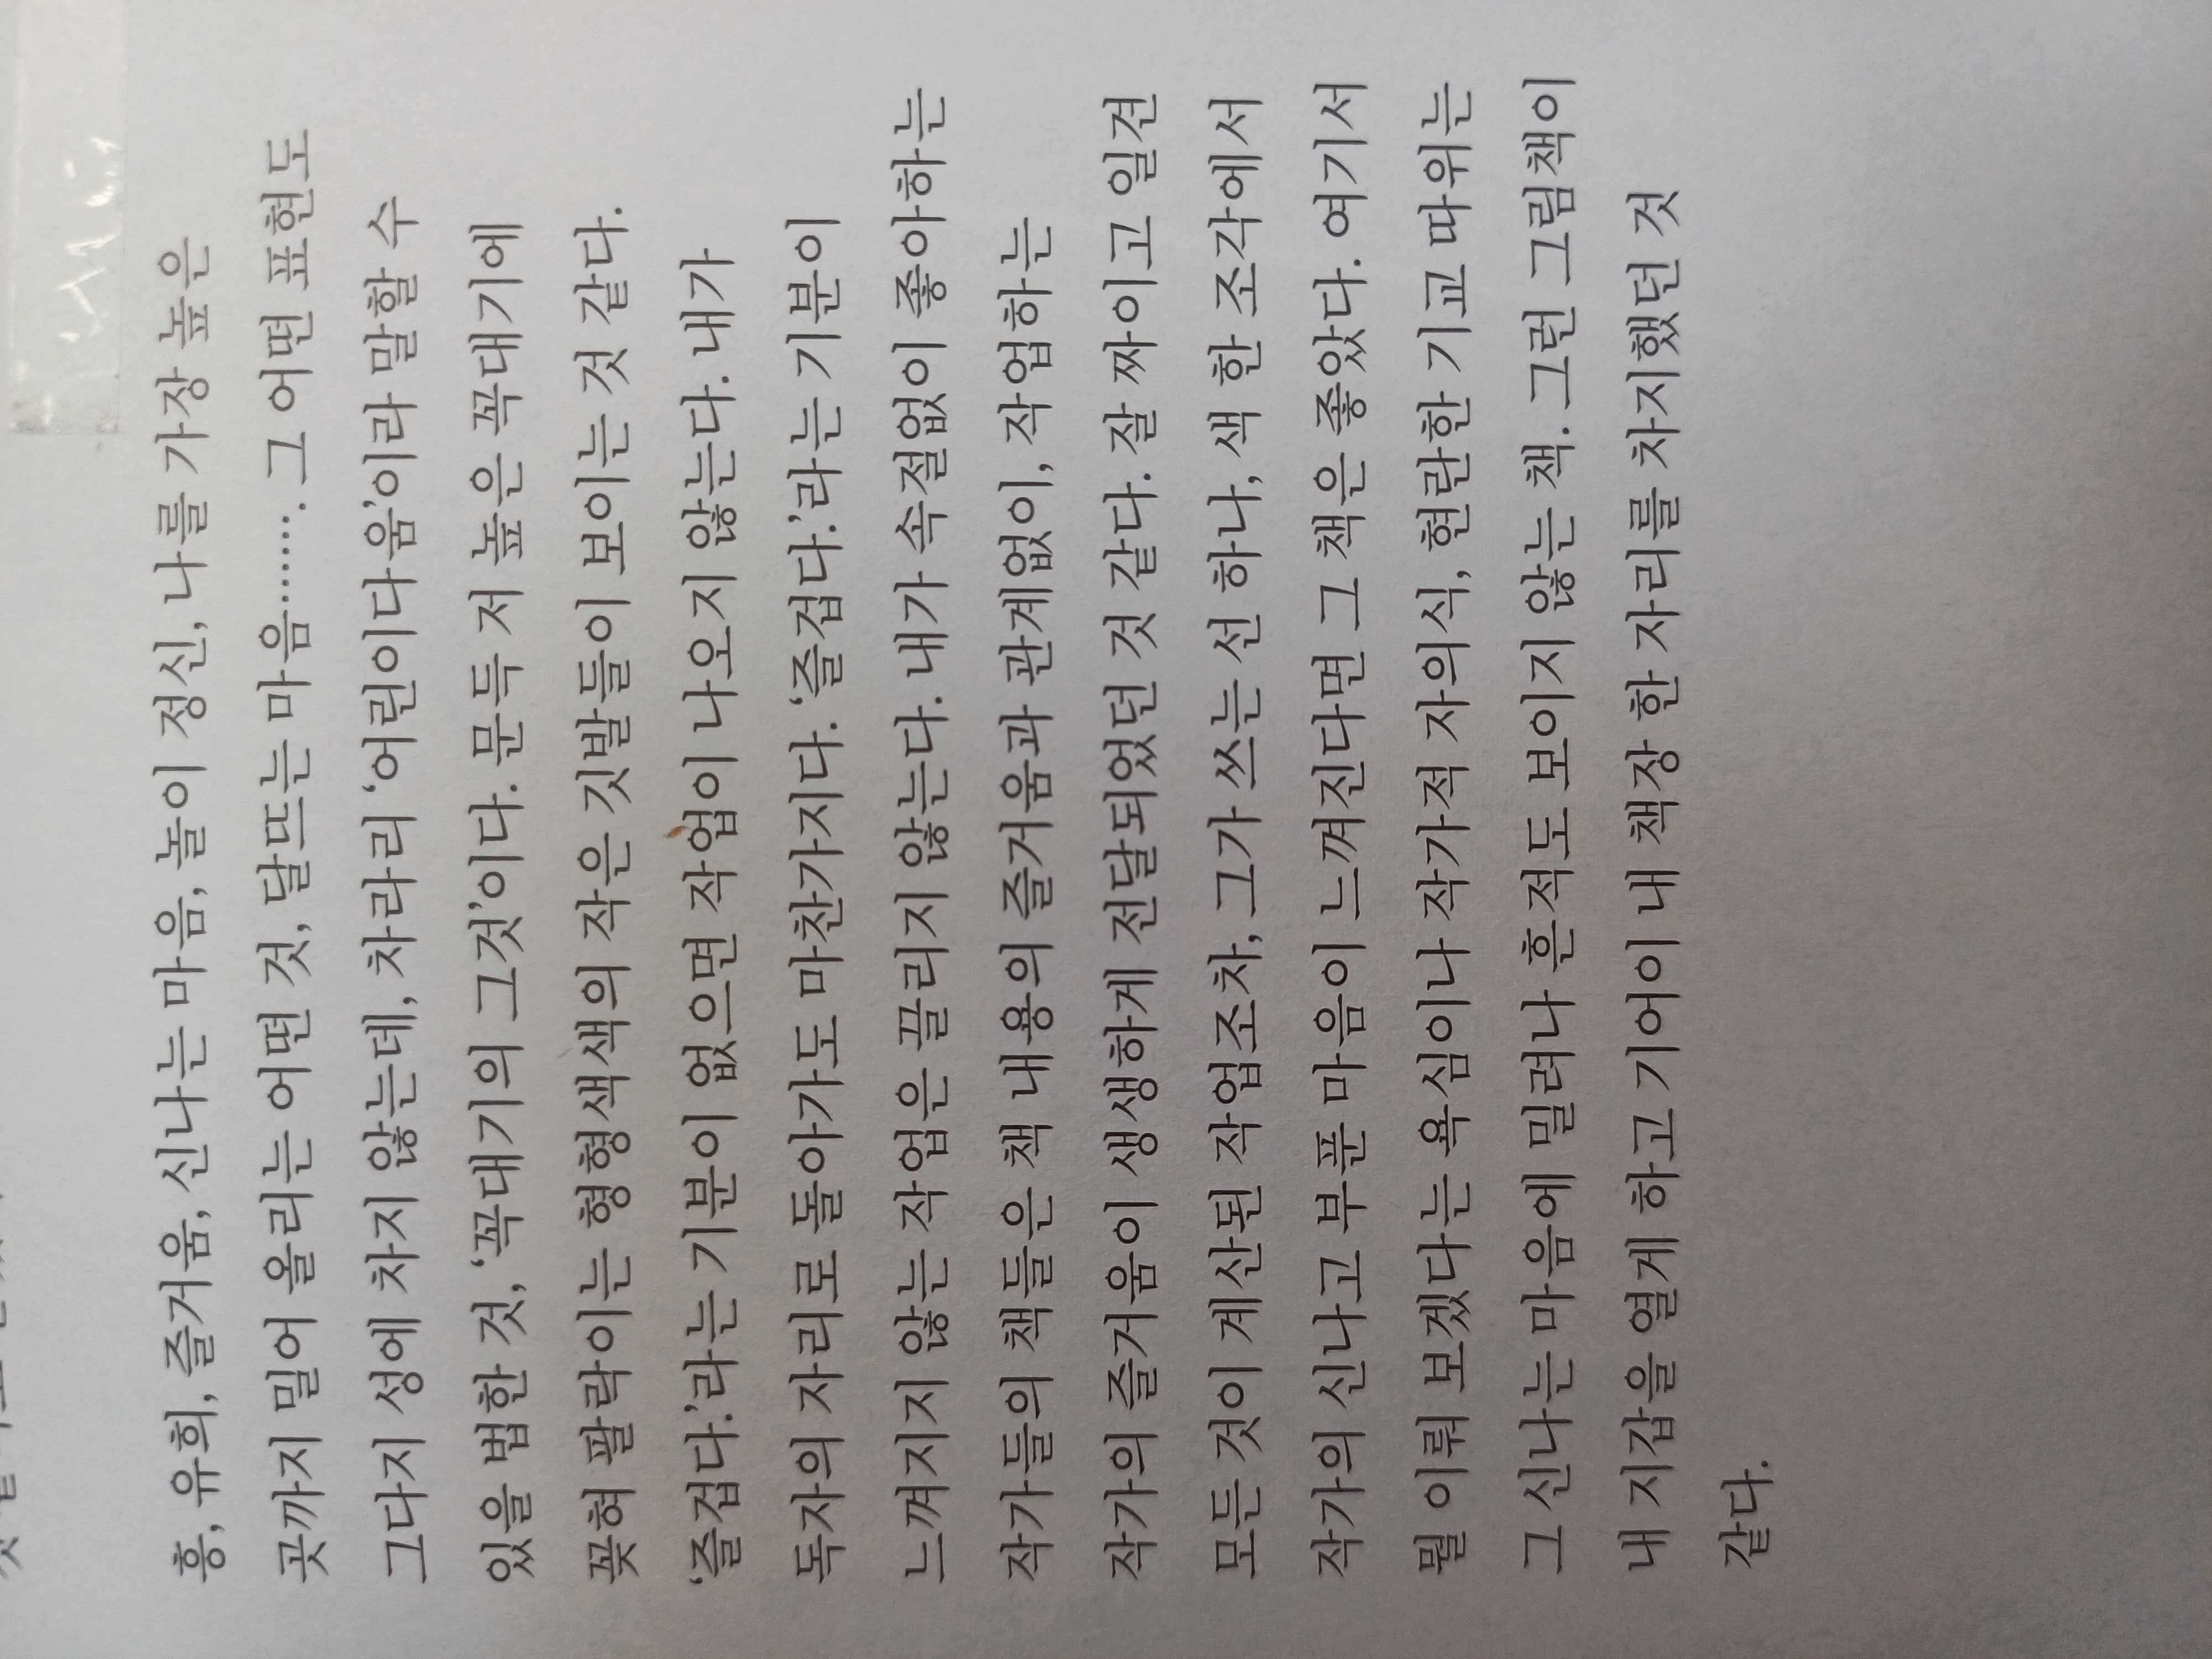 흥, 유희, 즐거움, 신나는 마음, 놀이 정신, 나를 가장 높은
곳까지 밀어 올리는 어떤 것, 달뜨는 마음……. 그 어떤 표현도
그다지 성에 차지 않는데, 차라리 ‘어린이다움’이라 말할 수
있을 법한 것, ‘꼭대기의 그것’이다. 문득 저 높은 꼭대기에
꽂혀 팔락이는 형형색색의 작은 깃발들이 보이는 것 같다.
‘즐겁다.’라는 기분이 없으면 작업이 나오지 않는다. 내가
독자의 자리로 돌아가도 마찬가지다. ‘즐겁다.’라는 기분이
느껴지지 않는 작업은 끌리지 않는다. 내가 속절없이 좋아하는
작가들의 책들은 책 내용의 즐거움과 관계없이, 작업하는
작가의 즐거움이 생생하게 전달되었던 것 같다. 잘 짜이고 일견
모든 것이 계산된 작업조차, 그가 쓰는 선 하나, 색 한 조각에서
작가의 신나고 부푼 마음이 느껴진다면 그 책은 좋았다. 여기서
뭘 이뤄 보겠다는 욕심이나 작가적 자의식, 현란한 기교 따위는
그 신나는 마음에 밀려나 흔적도 보이지 않는 책. 그런 그림책이
내 지갑을 열게 하고 기어이 내 책장 한 자리를 차지했던 것
같다.